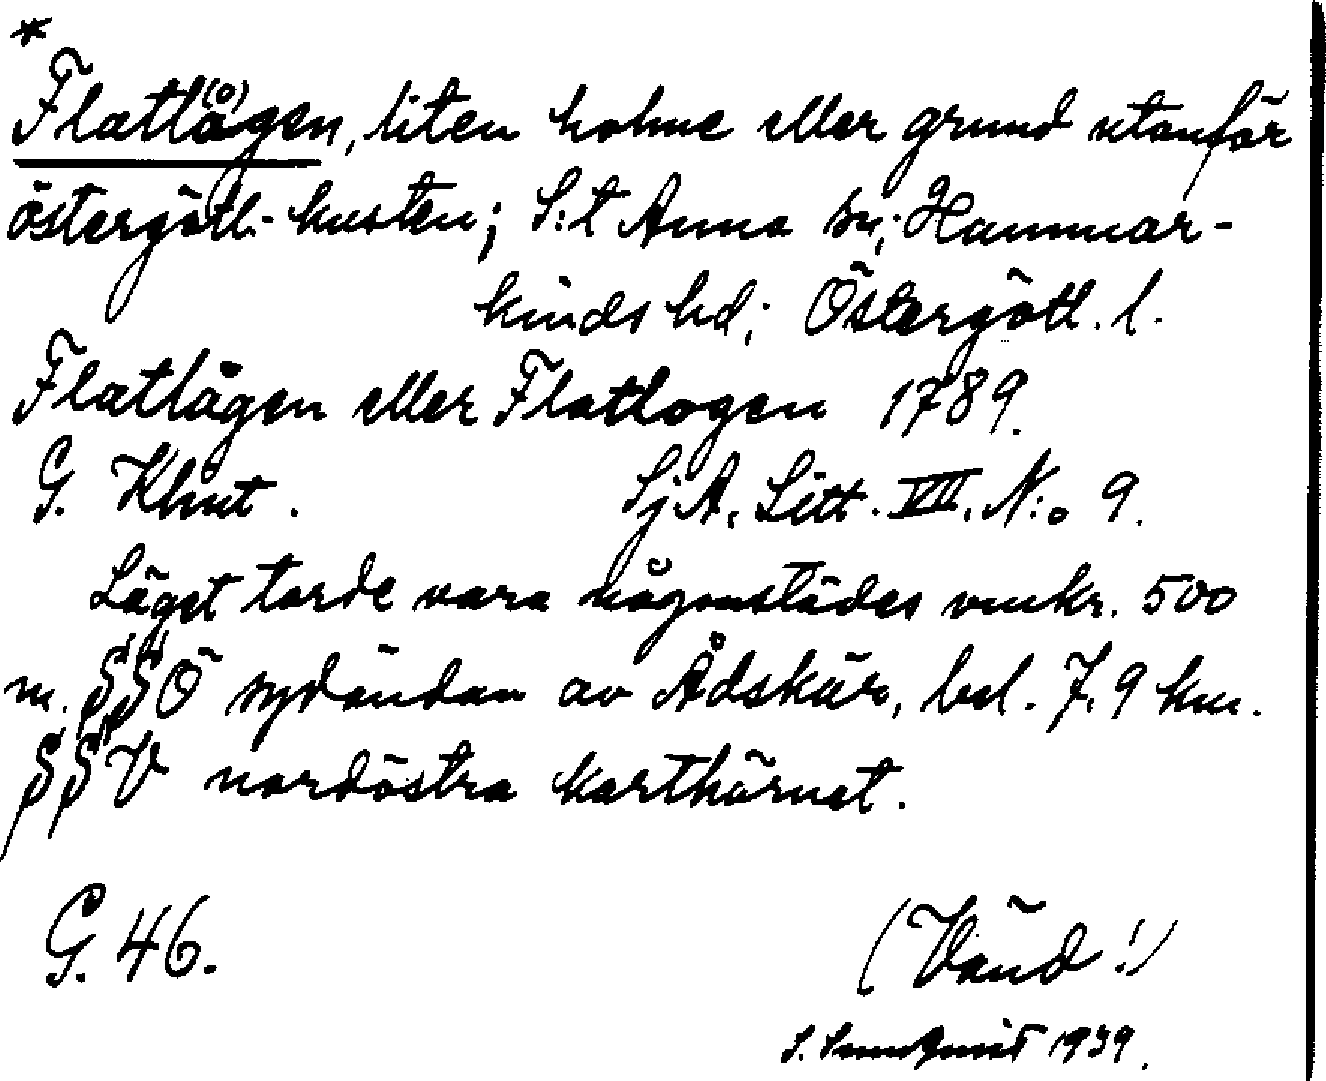 *
Flatlå(o)gen, liten holme eller grund utanför
östergötl. kusten; S:t Anna sn; Hammar-
kinds hd; Östergötl. l.
Flatlågen eller Flatlogen 1789.
G. Klint. SjA. Litt. VII. N:o 9.
Läget torde vara någonstädes omkr. 500
m. SSÖ sydändan av Ådskär, bel. 7,9 km.
SSV nordöstra karthörnet.
G. 46. (Vänd!)
S. Sundquist 1939.